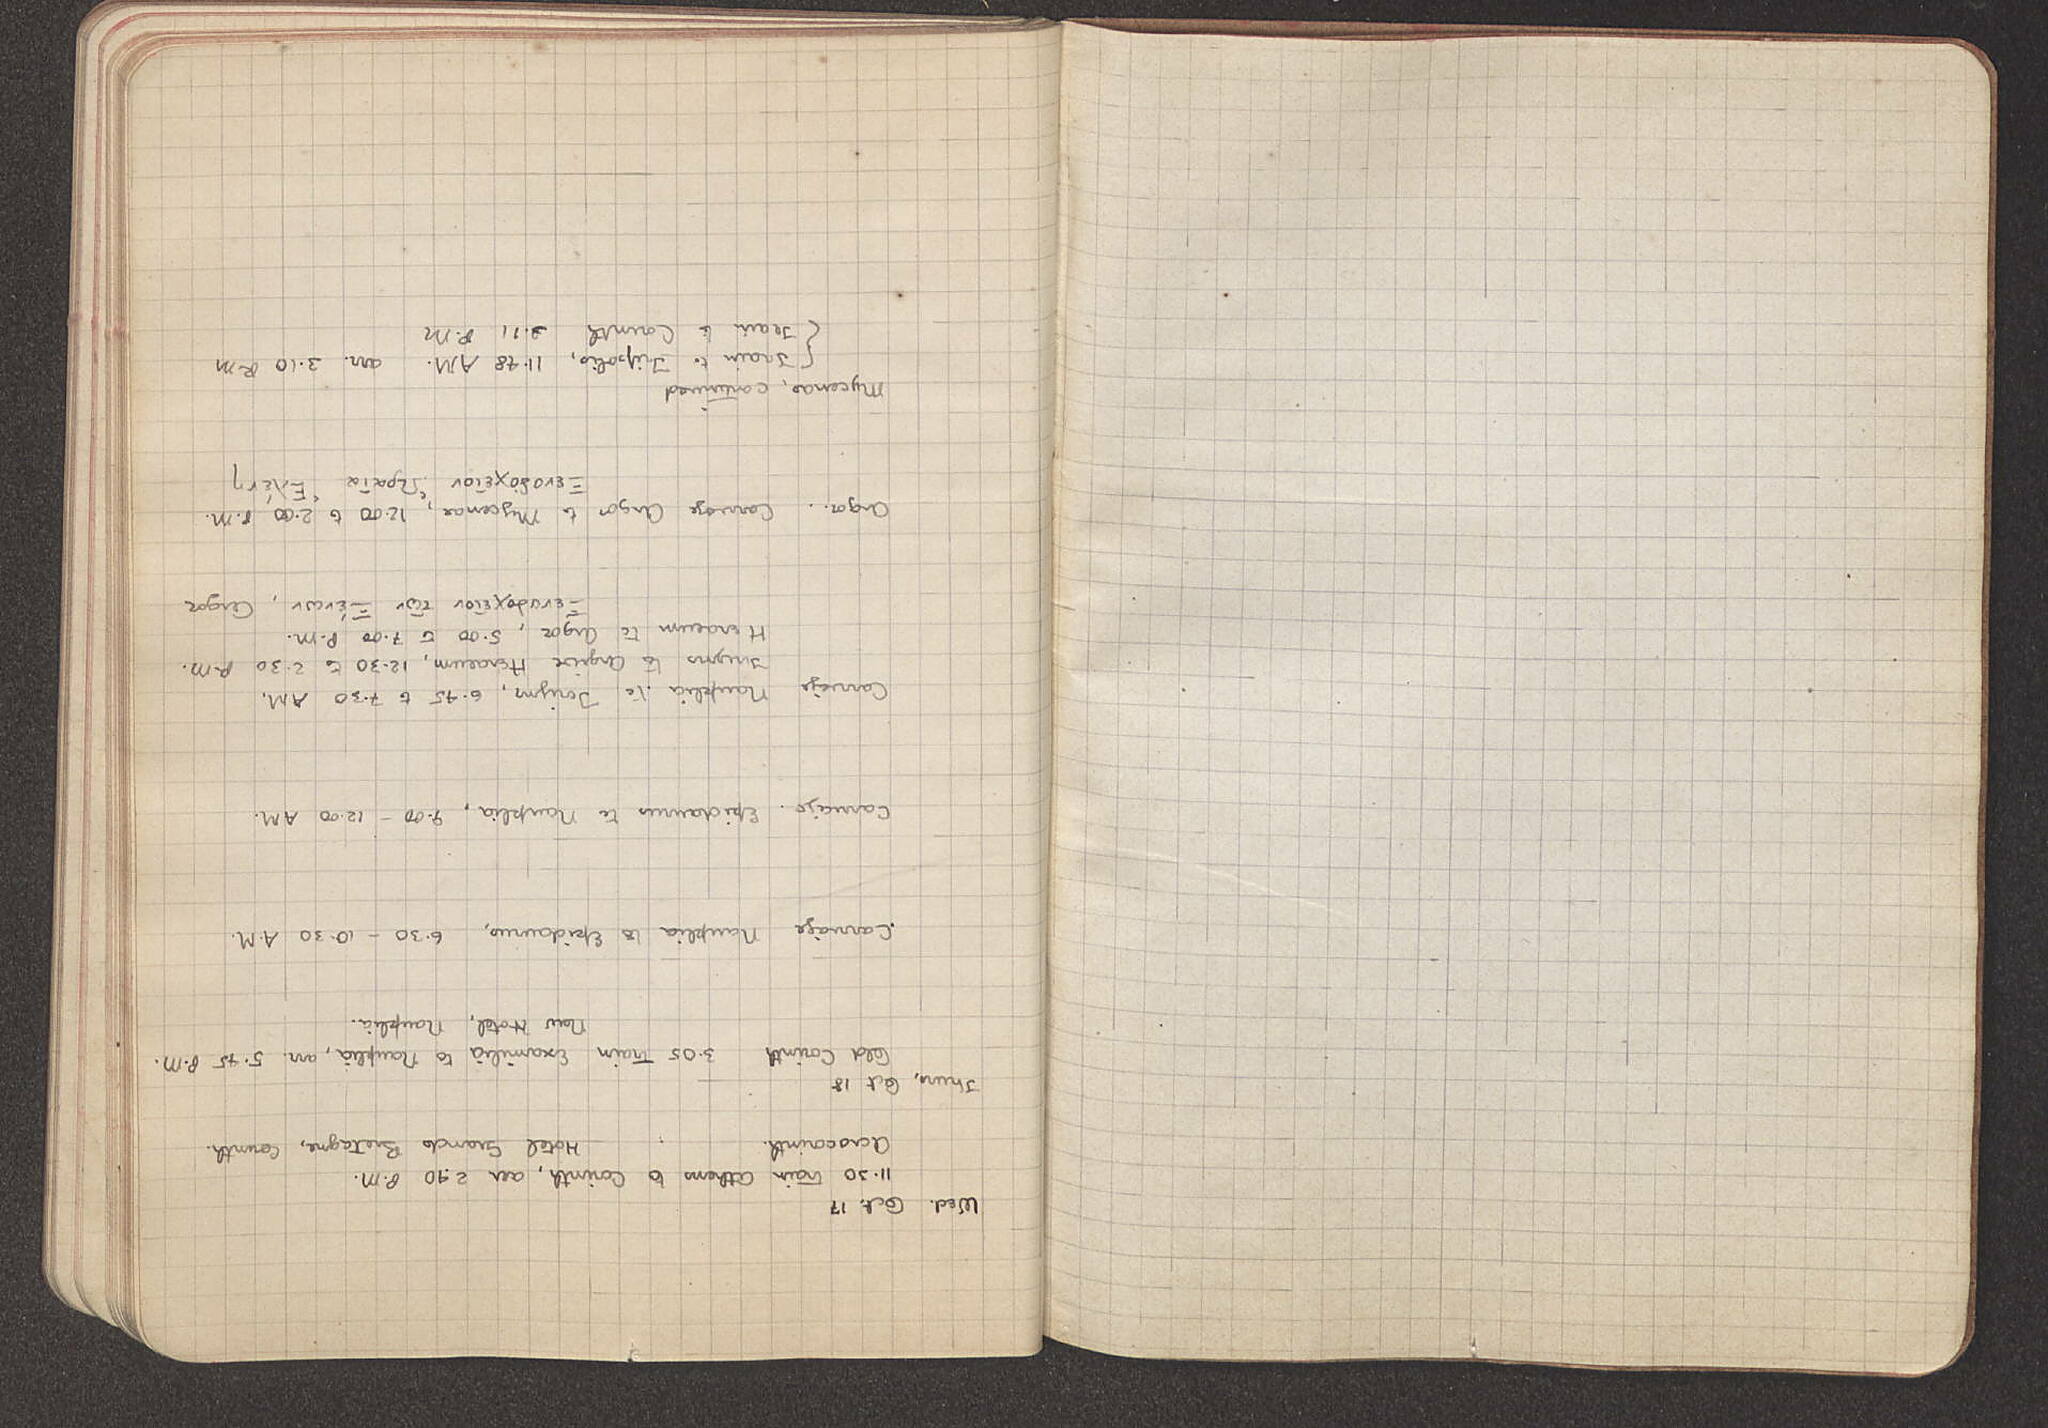 Wed. Oct. 17
11.30 Train Athens to Corinth, arr 2.40 P.M.
Acrocorinth. Hotel Grande Bretagne, Corinth.
Thurs, Oct 18
Old Corinth 3.05 Train Examilia to Nauplia, arr. 5.45 P.M.
New Hotel, Nauplia.
Carriage Nauplia to Epidaurus, 6.30 – 10.30 A.M.
Carriage. Epidaurus to Nauplia, 9.00 – 12.00 AM.
Carriage Nauplia to Tiryns, 6.45 to 7.30 AM.
Tiryns to Argive Heraeum, 12.30 to 2.30 P.M.
Heraeum to Argos, 5.00 to 7.00 P.M.
Ξενοδοχεῖον τῶν Ξένων, Argos
Argos. Carriage Argos to Mycenae, 12.00 to 2.00, P.M.
Ξενοδοχεῖον Ὡραία Ἑλένη
Mycenae, continued
{ Train to Tripolis, 11.48 AM. arr. 3.10 P.M
{ Train to Corinth 3.11 P.M